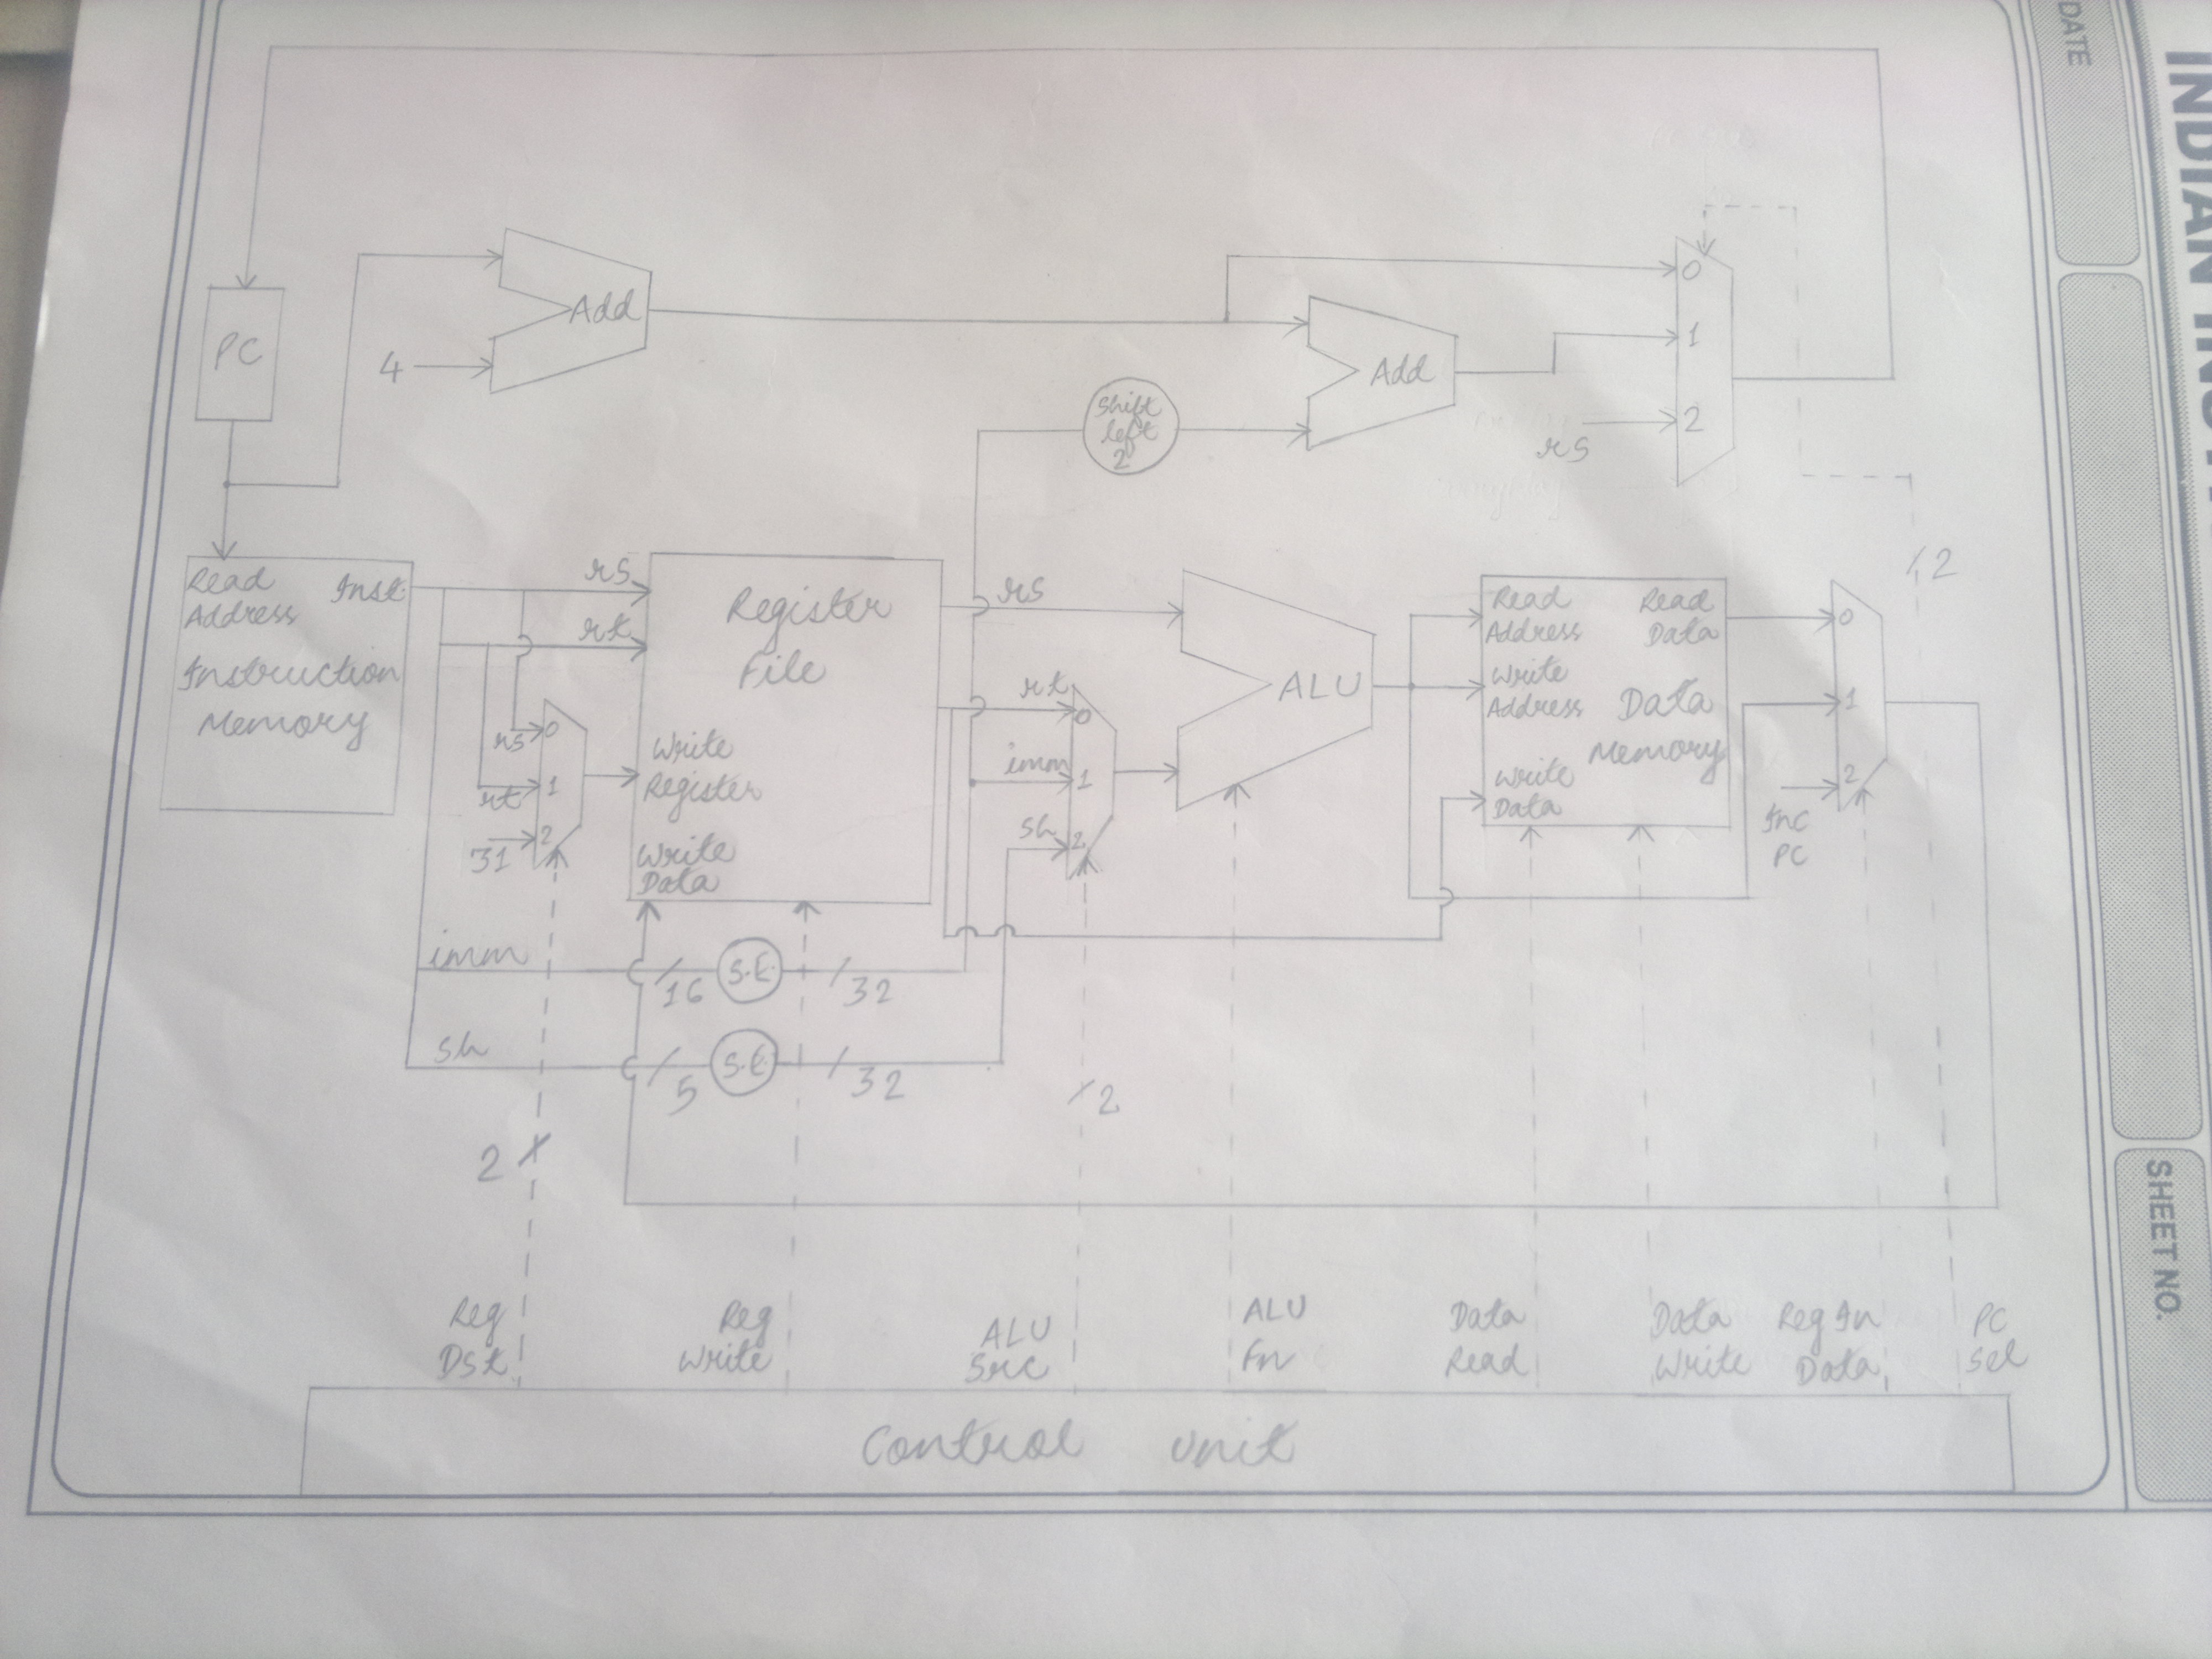 DATE
INDIAN INS
SHEET NO.
PC
4
Add
Shift
left
2
Add
0
1
2
rs
2
Read
Address
Inst.
Instruction
Memory
rs
rt
Register
File
Write
Register
Write
Data
rs
0
rt
1
31
2
rs
rt
0
imm
1
sh
2
ALU
Read
Address
Read
Data
Write
Address
Data
Memory
Write
Data
0
1
2
Inc
PC
imm
16
S.E.
32
sh
5
S.E.
32
2
2
Reg
Dst.
Reg
Write
ALU
Src
ALU
Fn
Data
Read
Data
Write
Reg In
Data
PC
Sel
Control unit